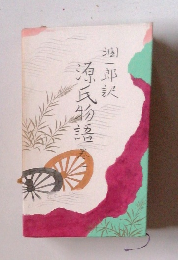 潤一郎訳
源氏物語